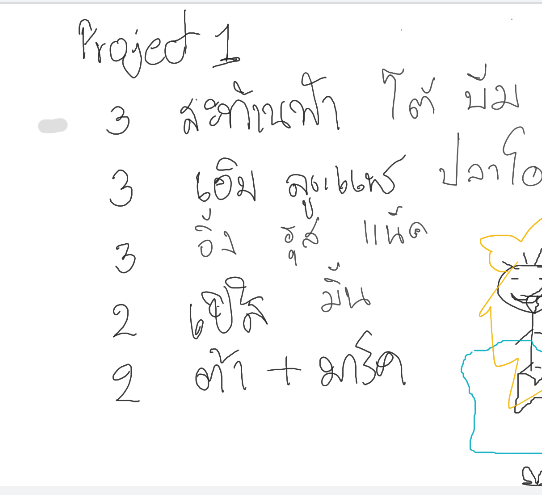 Project 1
3 สะท้านฟ้า โต้ บีม
3 เอิม ปลาโอ
3 อิ้ง รุส แน็ค
2 เปิ้ล มิ้น
2 ต้า + มาร์ค